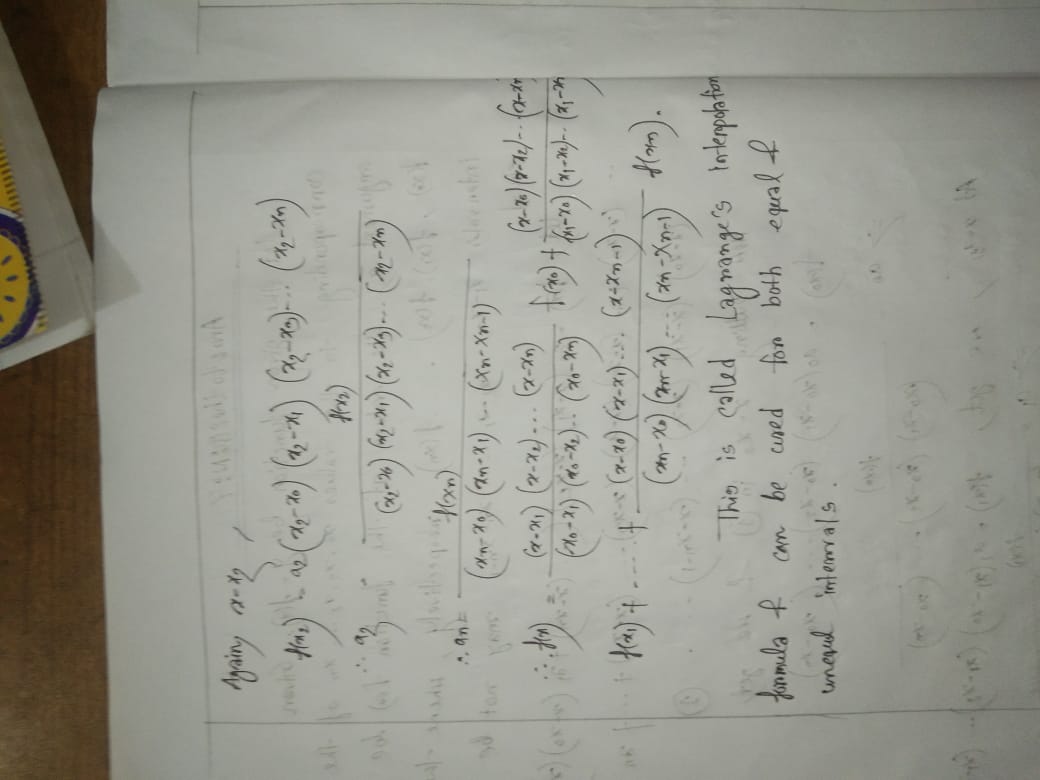 Again, x=x2
f(x2) = a2 (x2-x0) (x2-x1) (x2-x3)... (x2-xn)
∴ a2 = f(x2) / (x2-x0) (x2-x1) (x2-x3)... (x2-xn)
∴ an = f(xn) / (xn-x0) (xn-x1) ... (xn-xn-1)
∴ f(x) = (x-x1) (x-x2)... (x-xn) / (x0-x1) (x0-x2)... (x0-xn) f(x0) + (x-x0) (x-x2)... (x-xn / (x1-x0) (x1-x2)... (x1-xn
f(x1) + .... + (x-x0) (x-x1)... (x-xn-1) / (xn-x0) (xn-x1) ... (xn-xn-1) f(xn).
This is called Lagrange's interpolation
formula & can be used for both equal &
unequal intervals.